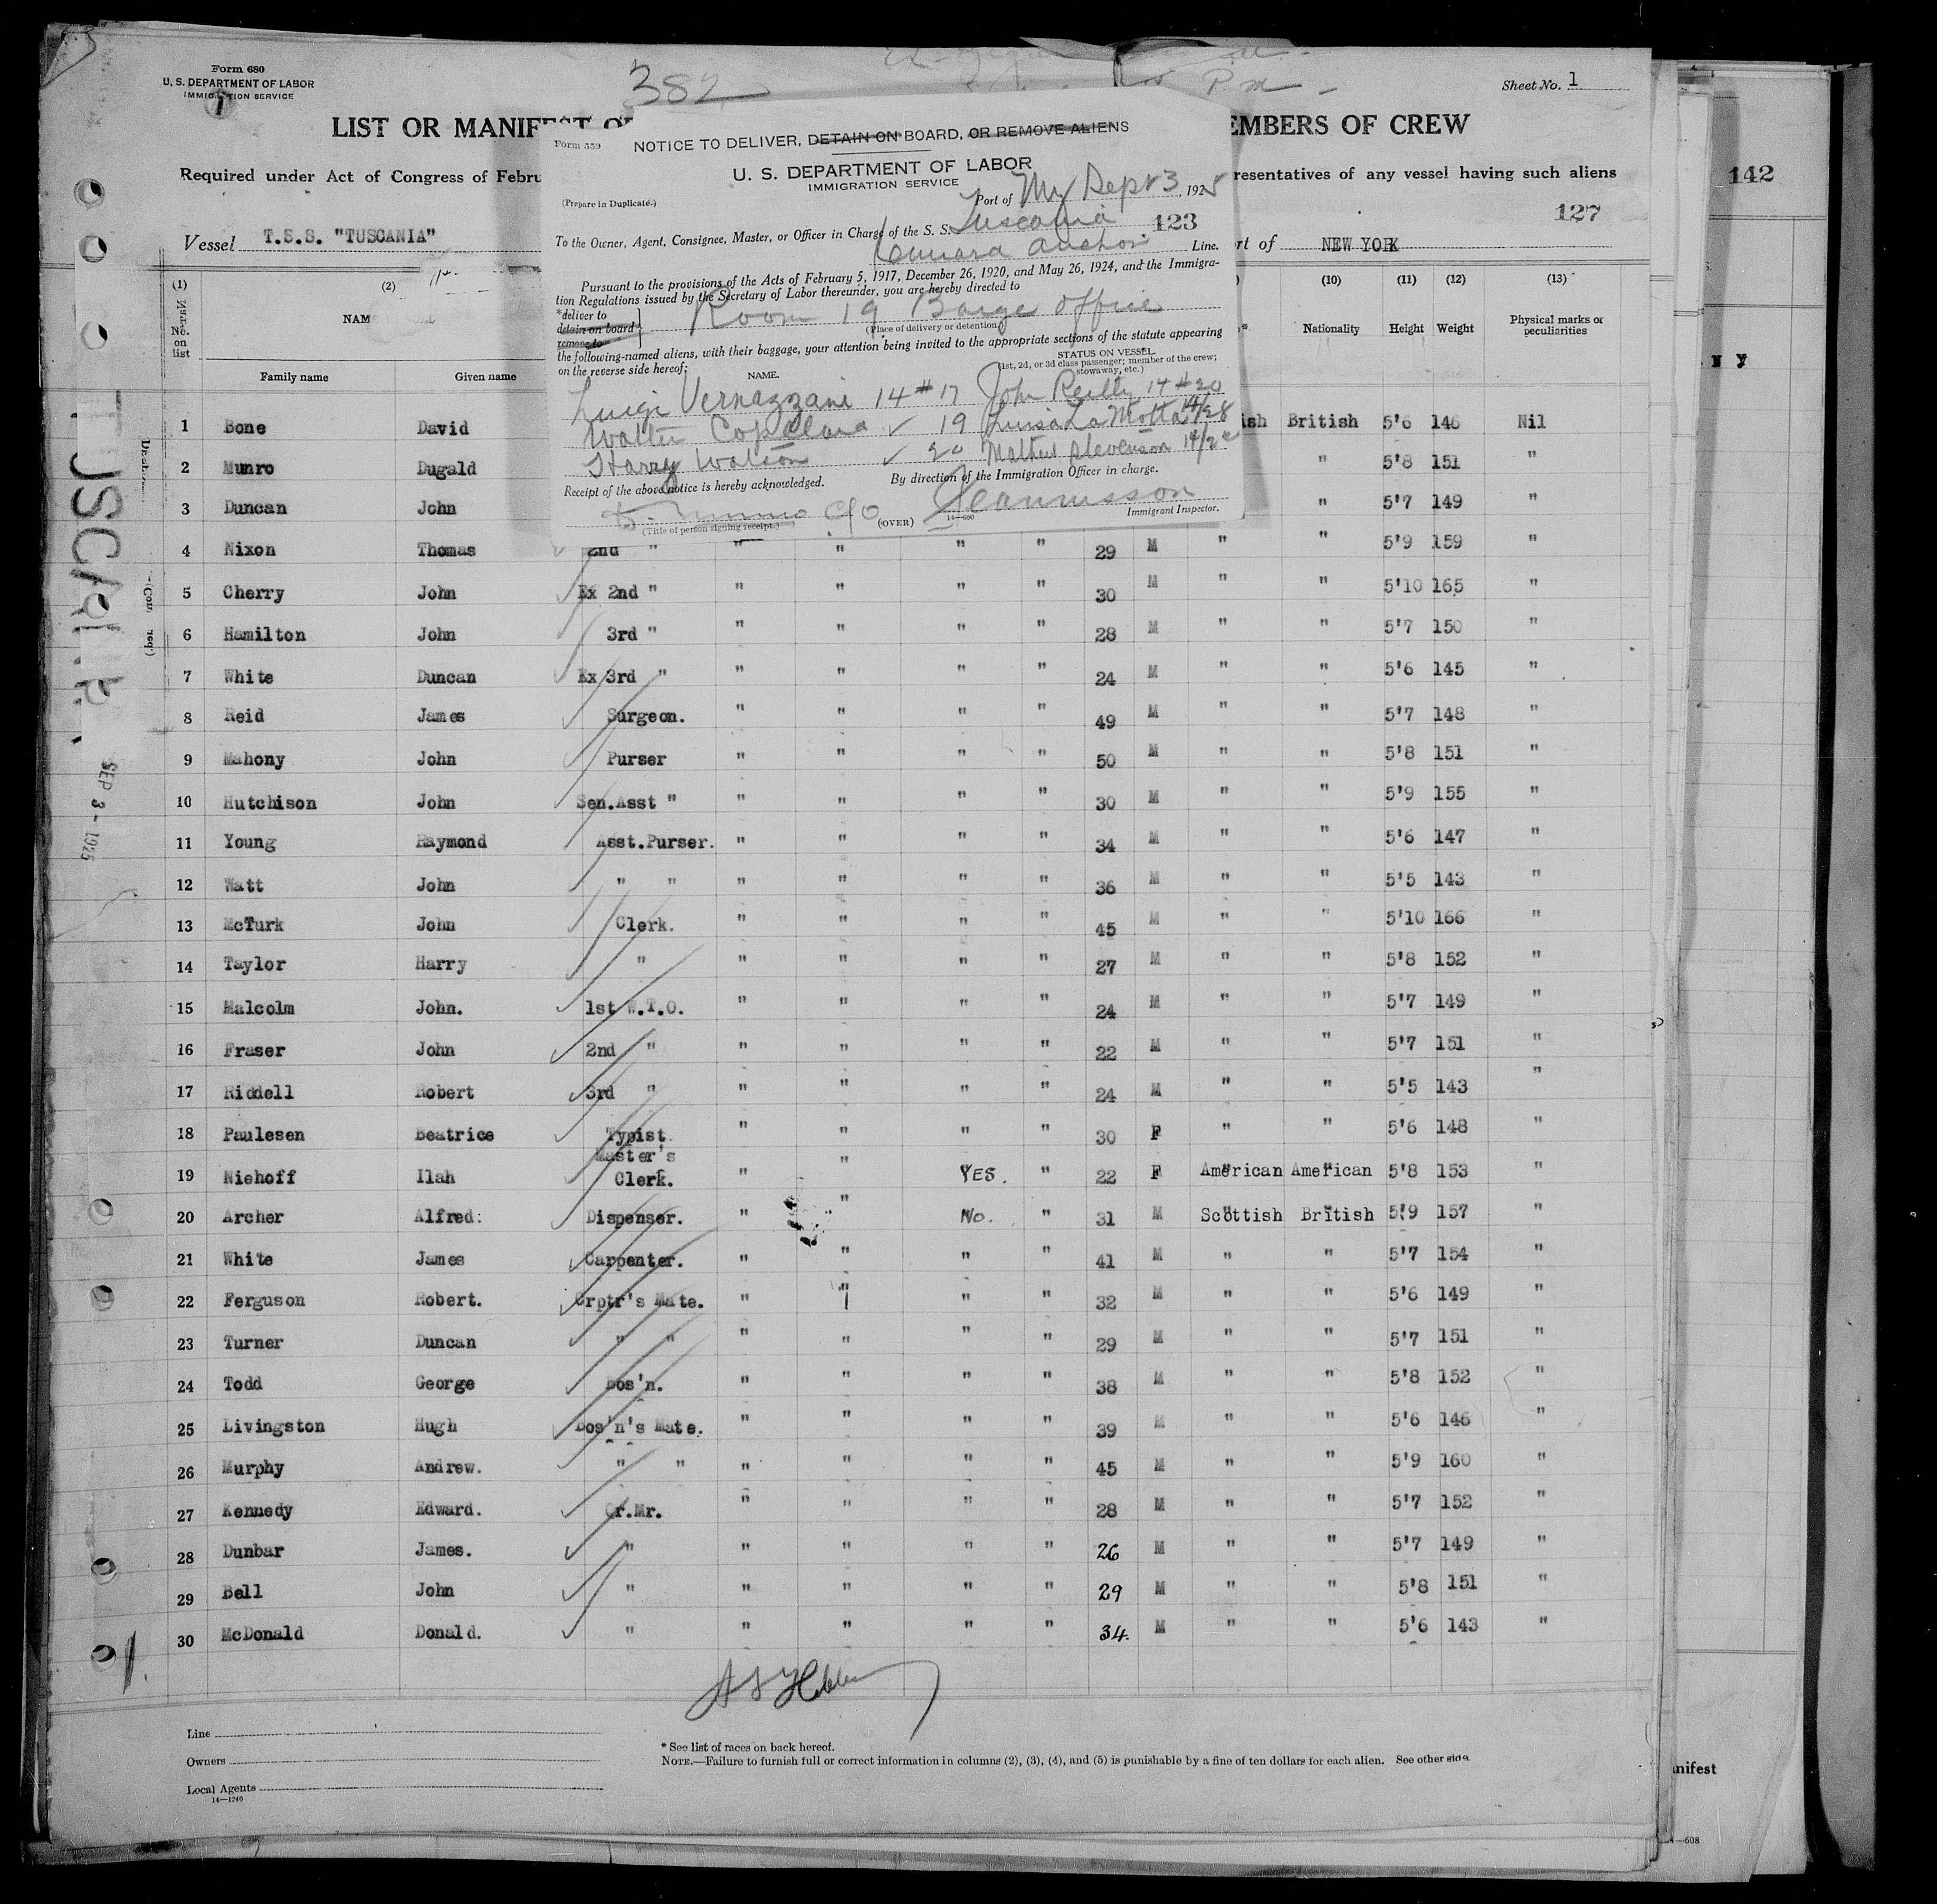 Form 680
U. S. DEPARTMENT OF LABOR
IMMIGRATION SERVICE
382
P.M.
Sheet No. 1
LIST OR MANIFEST O
EMBERS OF CREW
Required under Act of Congress of Febru
resentatives of any vessel having such aliens
142
127
Vessel T.S.S. "TUSCANIA"
rt of NEW YORK
Form 559
NOTICE TO DELIVER, DETAIN ON BOARD, OR REMOVE ALIENS
U. S. DEPARTMENT OF LABOR
IMMIGRATION SERVICE
(Prepare in Duplicate.)
Port of NY Sept 3, 1925
To the Owner, Agent, Consignee, Master, or Officer in Charge of the S. S. Tuscania 123
Cunard Anchor Line.
Pursuant to the provisions of the Acts of February 5, 1917, December 26, 1920, and May 26, 1924, and the Immigra-
tion Regulations issued by the Secretary of Labor thereunder, you are hereby directed to
*deliver to
detain on board
remove to
Room 19 Barge Office
(Place of delivery or detention)
the following-named aliens, with their baggage, your attention being invited to the appropriate sections of the statute appearing
on the reverse side hereof:
NAME.
STATUS ON VESSEL
(1st, 2d, or 3d class passenger; member of the crew;
stowaway, etc.)
Luigi Vernazzani 14 # 17 John Reilly 14 # 20
Walter Copeland ✓ 19 Luisa La Motta 14/28
Harry Watson ✓ 20 Mathew Stevenson
Receipt of the above notice is hereby acknowledged.
By direction of the Immigration Officer in charge.
(Title of person signing receipt.)
(OVER)
14—660
Immigrant Inspector.
(1) (2) (10) (11) (12) (13)
No. on list
NAM
Family name Given name
Nationality Height Weight Physical marks or peculiarities
1 Bone David ish British 5'6 146 Nil
2 Munro Dugald " 5'8 151 "
3 Duncan John " 5'7 149 "
4 Nixon Thomas 2nd " " " " " 29 M " " 5'9 159 "
5 Cherry John Ex 2nd " " " " " 30 M " " 5'10 165 "
6 Hamilton John 3rd " " " " " 28 M " " 5'7 150 "
7 White Duncan Ex 3rd " " " " 24 M " " 5'6 145 "
8 Reid James Surgeon. " " " " 49 M " " 5'7 148 "
9 Mahony John Purser " " " " 50 M " " 5'8 151 "
10 Hutchison John Sen.Asst " " " " " 30 M " " 5'9 155 "
11 Young Raymond Asst.Purser. " " " " 34 M " " 5'6 147 "
12 Watt John " " " " " " 36 M " " 5'5 143 "
13 McTurk John Clerk. " " " " 45 M " " 5'10 166 "
14 Taylor Harry " " " " " 27 M " " 5'8 152 "
15 Malcolm John. 1st W.T.O. " " " " 24 M " " 5'7 149 "
16 Fraser John 2nd " " " " " 22 M " " 5'7 151 "
17 Riddell Robert 3rd " " " " " 24 M " " 5'5 143 "
18 Paulesen Beatrice Typist. " " " " 30 F " " 5'6 148 "
19 Niehoff Ilah Master's Clerk. " " YES. " 22 F American American 5'8 153 "
20 Archer Alfred: Dispenser. " " No. " 31 M Scottish British 5'9 157 "
21 White James Carpenter. " " " " 41 M " " 5'7 154 "
22 Ferguson Robert. Crptr's Mate. " " " " 32 M " " 5'6 149 "
23 Turner Duncan " " " " " " 29 M " " 5'7 151 "
24 Todd George Bos'n. " " " " 38 M " " 5'8 152 "
25 Livingston Hugh Bos'n's Mate. " " " " 39 M " " 5'6 146 "
26 Murphy Andrew. " " " " " " 45 M " " 5'9 160 "
27 Kennedy Edward. Qr.Mr. " " " " 28 M " " 5'7 152 "
28 Dunbar James. " " " " " 26 M " " 5'7 149 "
29 Bell John " " " " " 29 M " " 5'8 151 "
30 McDonald Donald. " " " " " 34. M " " 5'6 143 "
SEP 3 - 1925
Line
Owners
Local Agents
14—1240
* See list of races on back hereof.
NOTE.—Failure to furnish full or correct information in columns (2), (3), (4), and (5) is punishable by a fine of ten dollars for each alien. See other side.
nifest
—608